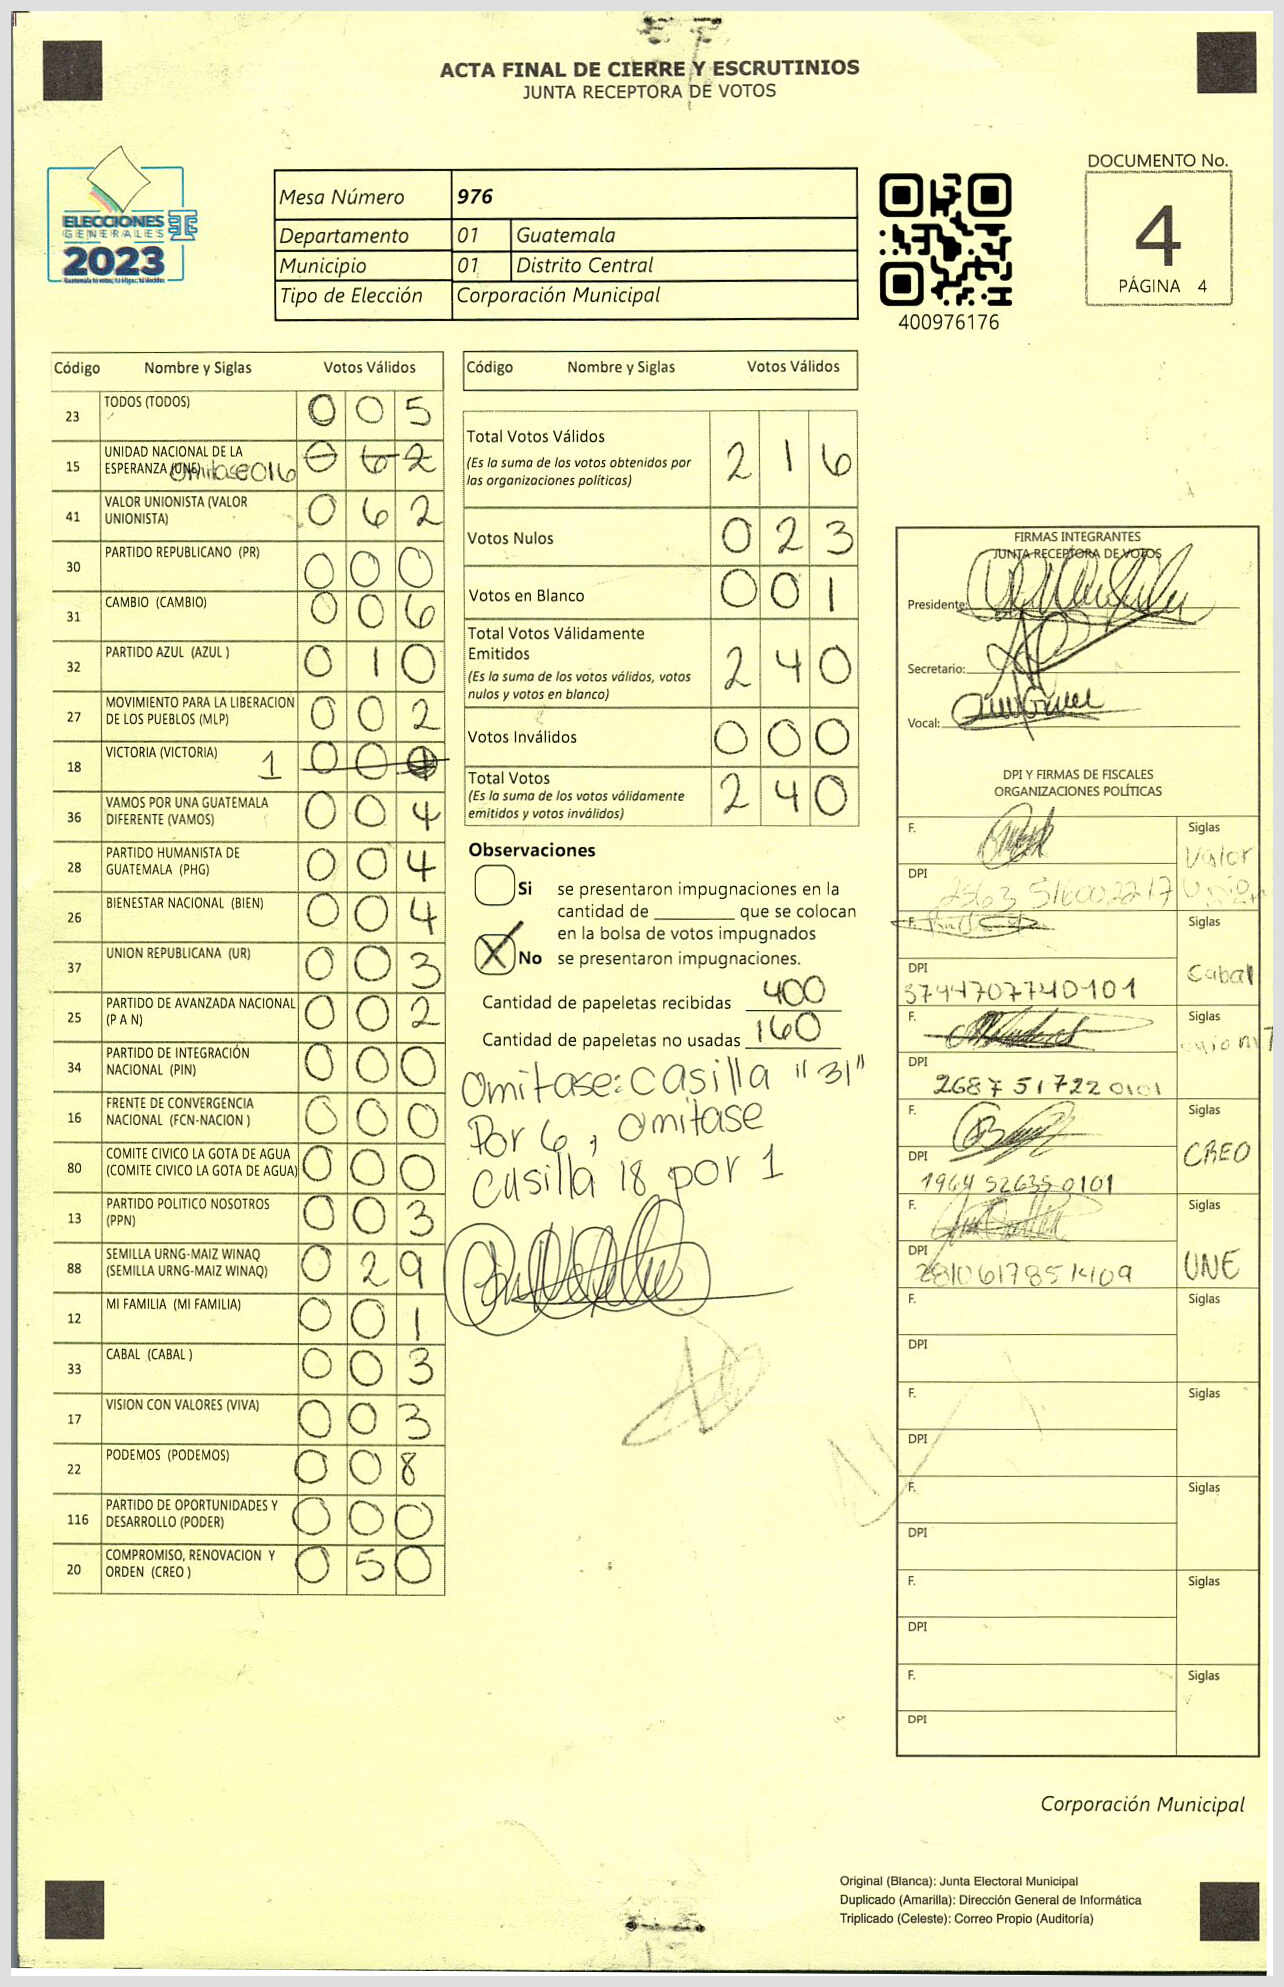 ACTA FINAL DE CIERRE Y ESCRUTINIOS
JUNTA RECEPTORA DE VOTOS
ELECCIONES
GENERALES
2023
Mesa Número 976
Departamento 01 Guatemala
Municipio 01 Distrito Central
Tipo de Elección Corporación Municipal
400976176
DOCUMENTO No.
4
PÁGINA 4
Código Nombre y Siglas Votos Válidos
23 TODOS (TODOS) 0 0 5
15 UNIDAD NACIONAL DE LA
ESPERANZA (UNE) omitase 016 0 6 2
41 VALOR UNIONISTA (VALOR
UNIONISTA) 0 6 2
30 PARTIDO REPUBLICANO (PR) 0 0 0
31 CAMBIO (CAMBIO) 0 0 6
32 PARTIDO AZUL (AZUL ) 0 1 0
27 MOVIMIENTO PARA LA LIBERACION
DE LOS PUEBLOS (MLP) 0 0 2
18 VICTORIA (VICTORIA) 1 0 0
36 VAMOS POR UNA GUATEMALA
DIFERENTE (VAMOS) 0 0 4
28 PARTIDO HUMANISTA DE
GUATEMALA (PHG) 0 0 4
26 BIENESTAR NACIONAL (BIEN) 0 0 4
37 UNION REPUBLICANA (UR) 0 0 3
25 PARTIDO DE AVANZADA NACIONAL
(P A N) 0 0 2
34 PARTIDO DE INTEGRACIÓN
NACIONAL (PIN) 0 0 0
16 FRENTE DE CONVERGENCIA
NACIONAL (FCN-NACION ) 0 0 0
80 COMITE CIVICO LA GOTA DE AGUA
(COMITE CIVICO LA GOTA DE AGUA) 0 0 0
13 PARTIDO POLITICO NOSOTROS
(PPN) 0 0 3
88 SEMILLA URNG-MAIZ WINAQ
(SEMILLA URNG-MAIZ WINAQ) 0 2 9
12 MI FAMILIA (MI FAMILIA) 0 0 1
33 CABAL (CABAL ) 0 0 3
17 VISION CON VALORES (VIVA) 0 0 3
22 PODEMOS (PODEMOS) 0 0 8
116 PARTIDO DE OPORTUNIDADES Y
DESARROLLO (PODER) 0 0 0
20 COMPROMISO, RENOVACION Y
ORDEN (CREO ) 0 5 0
Código Nombre y Siglas Votos Válidos
Total Votos Válidos 2 1 6
(Es la suma de los votos obtenidos por
las organizaciones políticas)
Votos Nulos 0 2 3
Votos en Blanco 0 0 1
Total Votos Válidamente
Emitidos 2 4 0
(Es la suma de los votos válidos, votos
nulos y votos en blanco)
Votos Inválidos 0 0 0
Total Votos 2 4 0
(Es la suma de los votos válidamente
emitidos y votos inválidos)
Observaciones
Si se presentaron impugnaciones en la
cantidad de ________ que se colocan
en la bolsa de votos impugnados
X No se presentaron impugnaciones.
Cantidad de papeletas recibidas 400
Cantidad de papeletas no usadas 160
Omitase: casilla "31"
Por 6, omitase
casilla 18 por 1
FIRMAS INTEGRANTES
JUNTA RECEPTORA DE VOTOS
Presidente:
Secretario:
Vocal:
DPI Y FIRMAS DE FISCALES
ORGANIZACIONES POLÍTICAS
F. Siglas
Valor
DPI
F. Siglas
Cabal
DPI
3744707740101
F. Siglas
DPI
2687 51722 0101
F. Siglas
CREO
DPI
1964 52635 0101
F. Siglas
UNE
DPI
F. Siglas
DPI
F. Siglas
DPI
F. Siglas
DPI
F. Siglas
DPI
F. Siglas
DPI
Corporación Municipal
Original (Blanca): Junta Electoral Municipal
Duplicado (Amarilla): Dirección General de Informática
Triplicado (Celeste): Correo Propio (Auditoría)